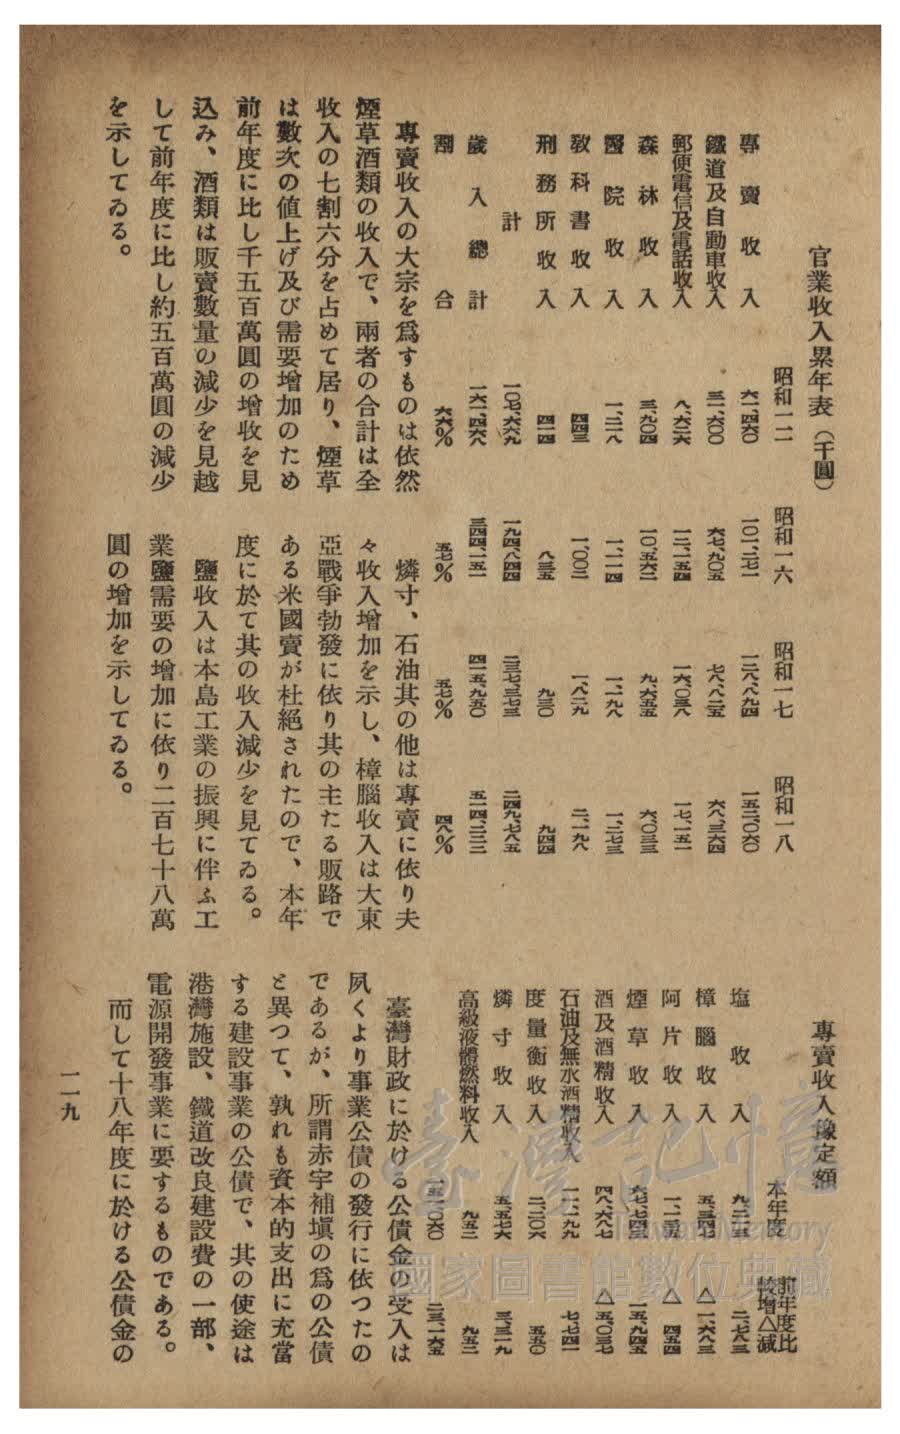 官業收入累年表(千圓)
昭和一二 昭和一六 昭和一七 昭和一八
專賣收入 六一、四六〇 一〇一、二七一 一二八、八九四 一五二、〇六〇
鐵道及自動車收入 三一、六〇〇 六七、九〇五 七八、八二五 六八、三六四
郵便電信及電話收入 八、六三六 一三、一五四 一六、〇三八 一七、一五一
森林收入 三、九〇四 一〇、五六二 九、六五五 六、〇三三
醫院收入 一、三一八 一、一一四 一、二九八 一、二七三
敎科書收入 四四三 一、〇〇二 一、八二九 二、一九八
刑務所收入 四二四 八三五 九三〇 九四四
計 一〇七、六六九 一九四、八四四 二三七、三七三 二四九、七八五
歲入總計 一六一、四六八 三四四、一五一 四一五、九五〇 五一四、二三二
割合 六六% 五七% 五七% 四八%
專賣收入の大宗を爲すものは依然
煙草酒類の收入で、兩者の合計は全
收入の七割六分を占めて居り、煙草
は數次の値上げ及び需要增加のため
前年度に比し千五百萬圓の增收を見
込み、酒類は販賣數量の減少を見越
して前年度に比し約五百萬圓の減少
を示してゐる。
燐寸、石油其の他は專賣に依り夫
々收入增加を示し、樟腦收入は大東
亞戰爭勃發に依り其の主たる販路で
ある米國賣が杜絕されたので、本年
度に於て其の收入減少を見てゐる。
鹽收入は本島工業の振興に伴ふ工
業鹽需要の增加に依り二百七十八萬
圓の增加を示してゐる。
專賣收入豫定額
本年度 前年度比較增△減
塩收入 九、二二五 二、七八三
樟腦收入 五、三四七 △一、六八三
阿片收入 一、一二五 △四五四
煙草收入 六七、七四三 一五、九四五
酒及酒精收入 四八、六八七 △五、〇三七
石油及無水酒精收入 一一、一九九 七、七四二
度量衡收入 二、二〇六 五五〇
燐寸收入 五、五七六 三、三一九
高級液體燃料收入 九五二 九五二
一五二、〇六〇 二三、一六五
臺灣財政に於ける公債金の受入は
夙くより事業公債の發行に依つたの
であるが、所謂赤字補塡の爲の公債
と異つて、孰れも資本的支出に充當
する建設事業の公債で、其の使途は
港灣施設、鐵道改良建設費の一部、
電源開發事業に要するものである。
而して十八年度に於ける公債金の
一一九
臺灣記憶
Taiwan Memory
國家圖書館數位典藏